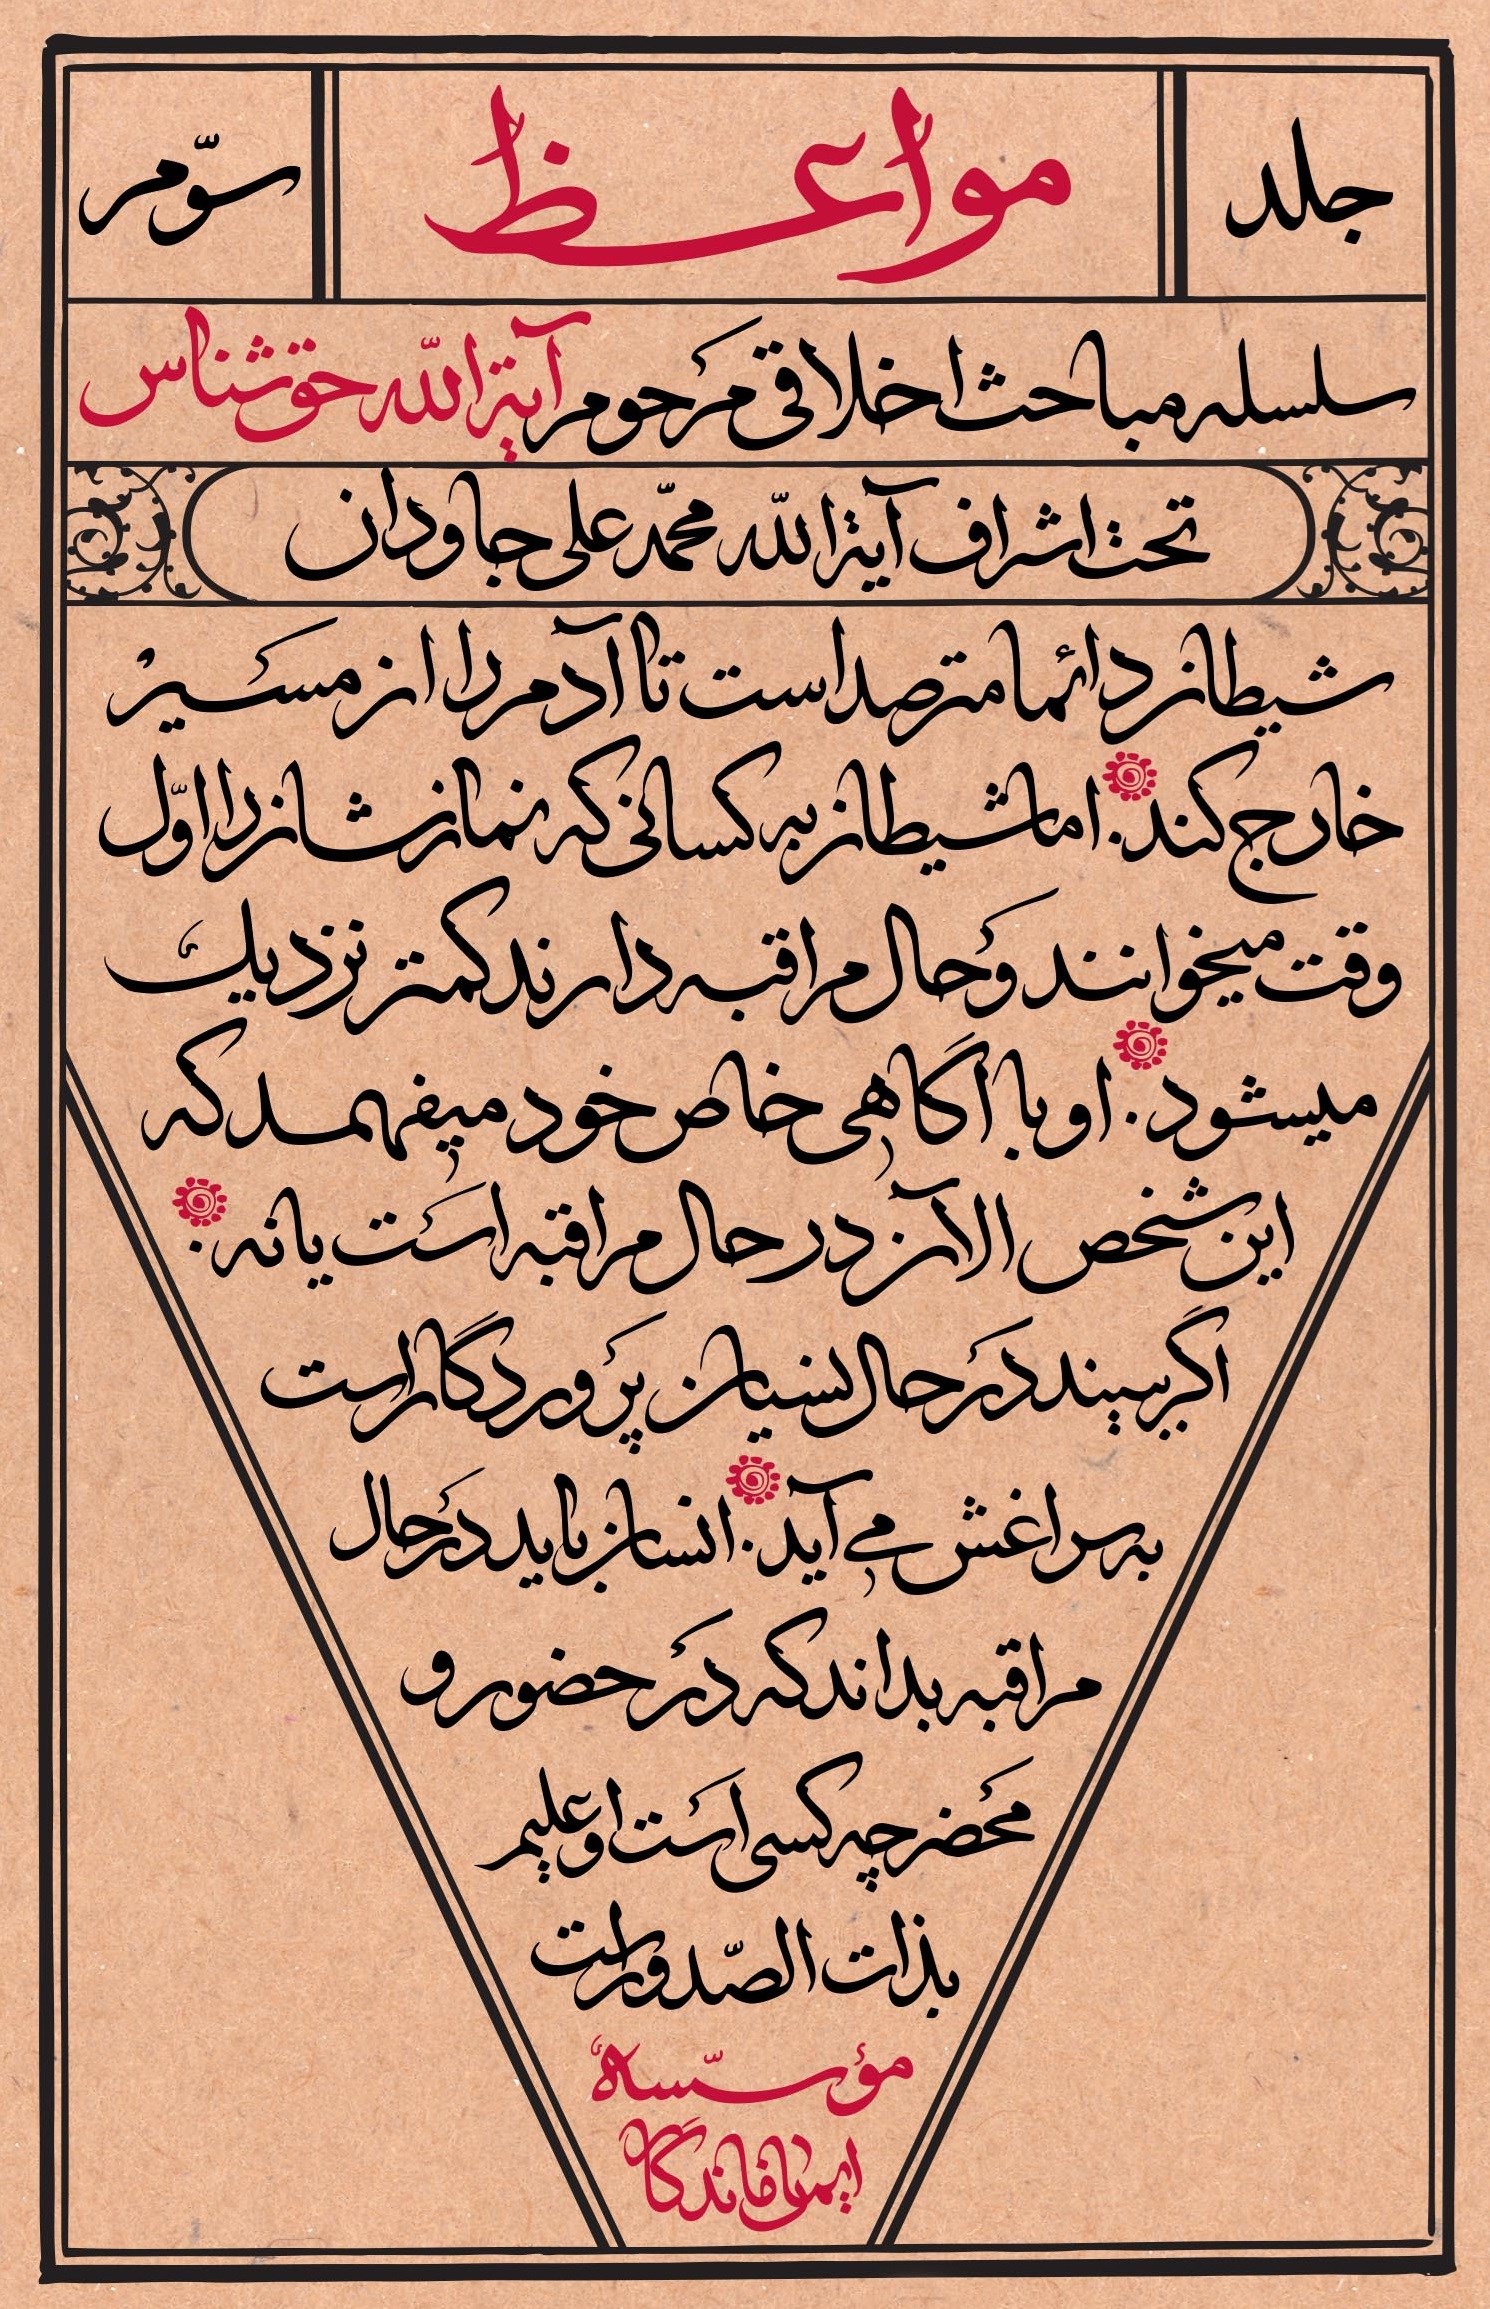 جلد مواعظ سوّم
سلسله مباحث اخلاقی مرحوم آیة الله حق شناس
تحت اشراف آیة الله محمّد علی جاودان
شیطان دائما مترصد است تا آدم را از مسیر
خارج کند. اما شیطان به کسانی که نمازشان را اوّل
وقت میخوانند و حال مراقبه دارند کمتر نزدیک
میشود. او با آگاهی خاص خود میفهمد که
این شخص الآن در حال مراقبه است یا نه.
اگر ببیند در حال نسیان پروردگار است
به سراغش می آید. انسان باید در حال
مراقبه بداند که در حضور و
محضر چه کسی است او علیم
بذات الصّدور است
مؤسّسهٔ
ایمان ماندگار